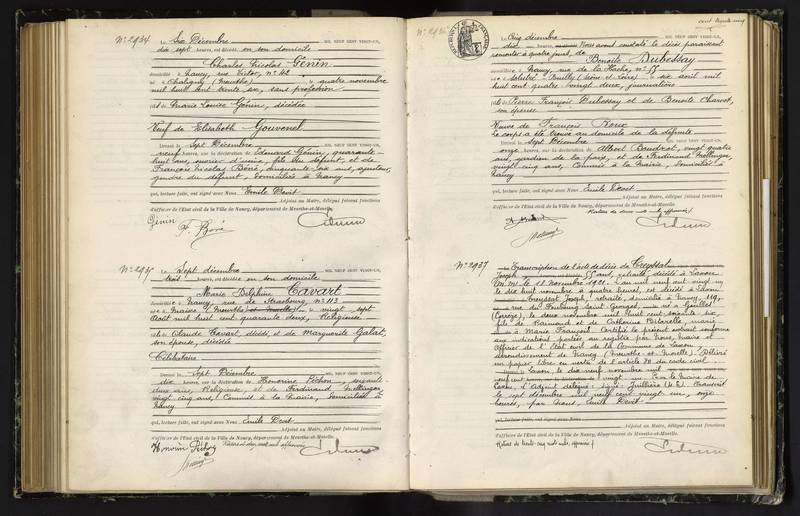 N° 2934
Le Six Décembre MIL NEUF CENT VINGT-UN,
dix sept heures, est décédé en son domicile
Charles Nicolas Génin
domicilié à Nancy, rue Victor, n° 42
né à Chaligny (Meurthe), le quatre novembre
mil huit cent trente six, sans profession
de Marie Louise Génin, décédée
Veuf de Elisabeth Gouvenel
Dressé le Sept Décembre MIL NEUF CENT VINGT-UN,
neuf heures, sur la déclaration de Edouard Génin, quarante
huit ans, ouvrier d'usine, fils du défunt, et de
François Nicolas Bové, cinquante six ans, ajusteur,
gendre du défunt, domiciliés à Nancy
qui, lecture faite, ont signé avec Nous Emile Devit
Adjoint au Maire, délégué faisant fonctions
d'officier de l'Etat civil de la Ville de Nancy, département de Meurthe-et-Moselle.
Génin
F. Bové
N° 2935
Le Sept décembre MIL NEUF CENT VINGT-UN,
trois heures, est décédée en son domicile
Marie Delphine Cavart
domiciliée à Nancy, rue de Strasbourg, n° 113
née à (Meurthe vingt sept
août mil huit cent quarante deux, Religieuse
de Claude Cavart, décédé, et de Marguerite Galat,
son épouse, décédée
Célibataire
Dressé le Sept Décembre MIL NEUF CENT VINGT-UN,
dix heures, sur la déclaration de Honorine
ans, Religieuse, et de Ferdinand
vingt cinq ans, Commis à la Mairie, domiciliés à
Nancy
qui, lecture faite, ont signé avec Nous Emile Devit
Adjoint au Maire, délégué faisant fonctions
d'officier de l'Etat civil de la Ville de Nancy, département de Meurthe-et-Moselle.
N° 2936
Le Cinq décembre MIL NEUF CENT VINGT-UN,
dix heures Nous avons constaté le décès paraissant
remonter à quatre jours, de
Benoite Dubessay
domiciliée à Nancy, rue de la Hache, n° 55
née à Solutré Pouilly (Saône et Loire) le six avril mil
huit cent quatre vingt deux, journalière
de Pierre François Dubessay et de Benoite Charvet,
son épouse
Veuve de François Roux
Le corps a été trouvé au domicile de la défunte
Dressé le Sept Décembre MIL NEUF CENT VINGT-UN,
onze heures, sur la déclaration de Albert vingt quatre
ans, gardien de la paix, et de Ferdinand
vingt cinq ans, Commis à la Mairie, domiciliés à
Nancy
qui, lecture faite, ont signé avec Nous Emile Devit
Adjoint au Maire, délégué faisant fonctions
d'officier de l'Etat civil de la Ville de Nancy, département de Meurthe-et-Moselle.
N° 2937
Transcription de l'acte de décès de Treyssat
Joseph, 55 ans, retraité, décédé à Laxou
(M. M.) le 18 novembre 1921. L'an mil neuf cent vingt un
le dix huit novembre à quatre heures, est décédé à Laxou
Treyssat Joseph, retraité, domicilié à Nancy, 119,
rue du Faubourg Saint Georges, né à
(Corrèze), le deux novembre mil huit cent soixante six,
fils de Raimond et de Catherine marié
à Marie François. Certifié le présent extrait conforme
aux indications portées au registre par Nous, Maire et
Officier de l'Etat civil de la Commune de Laxou
arrondissement de Nancy (Meurthe et Moselle). Délivré
sur papier libre en vertu de l'article 80 du code civil
Laxou, le dix neuf novembre mil
neuf cent vingt un Pour le Maire de
Laxou, l'Adjoint délégué, signé: Transcrit
le sept décembre mil neuf cent vingt un, onze
heures, par Nous, Emile Devit
d'officier de l'Etat civil de la Ville de Nancy, département de Meurthe-et-Moselle.